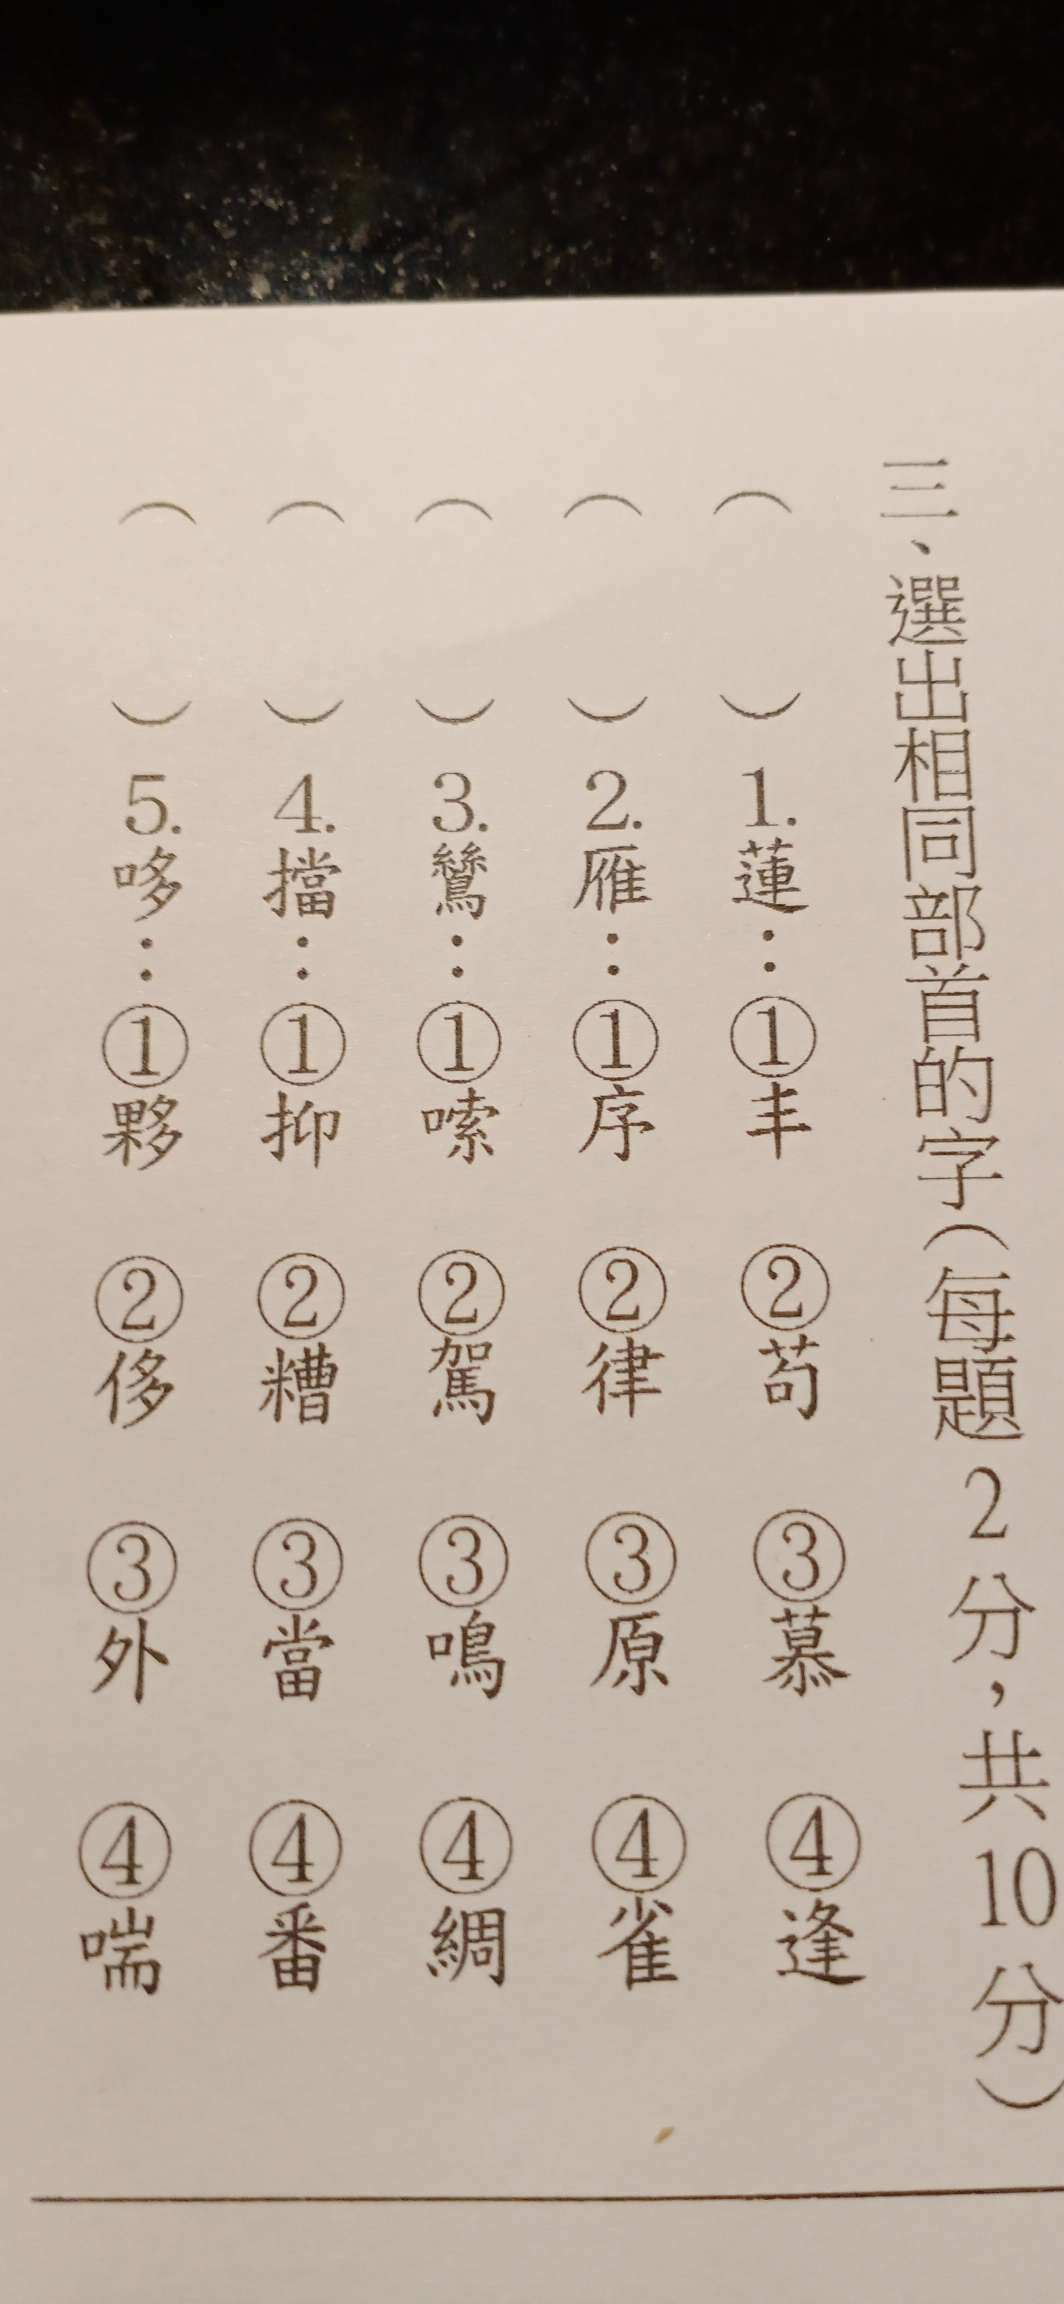 三、選出相同部首的字(每題2分,共10分)
( )1.蓮:①丰 ②苟 ③慕 ④逢
( )2.雁:①序 ②律 ③原 ④雀
( )3.鶯:①嗦 ②駕 ③鳴 ④綢
( )4.擋:①抑 ②糟 ③當 ④番
( )5.哆:①夥 ②侈 ③外 ④喘